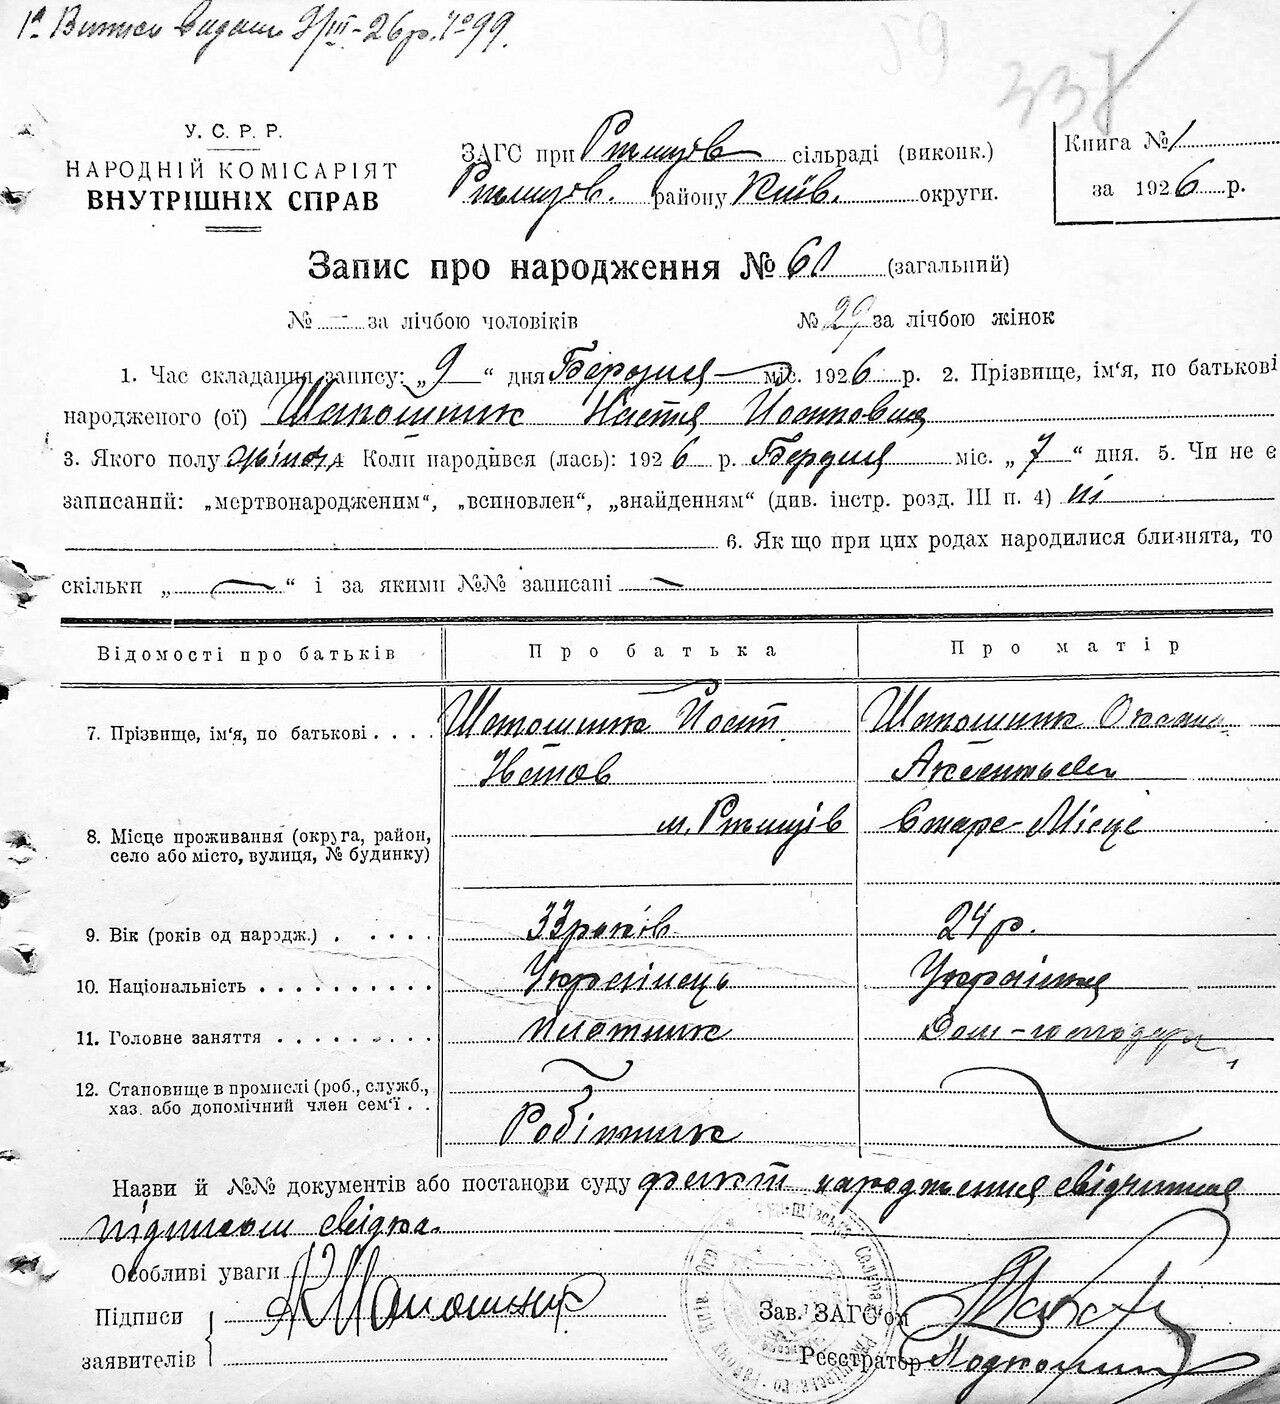 1а Виписи видано 9/III-26р. №99.
59
337
У. С. Р. Р.
НАРОДНІЙ КОМІСАРІЯТ
ВНУТРІШНІХ СПРАВ
ЗАГС при Ржищів сільраді (виконк.)
Ржищів. району Київ. округи.
Книга № 1
за 1926 р.
Запис про народження № 61 (загальний)
№ — за лічбою чоловіків № 29 за лічбою жінок
1. Час складання запису: „ 9 “ дня Березня міс. 1926 р. 2. Прізвище, ім'я, по батькові
народженого (ої) Шапошник Настя Йостовна
3. Якого полу жіноч. 4 Коли народився (лась): 1926 р. Березня міс. „ 7 “ дня. 5. Чи не є
записаний: „мертвонародженим“, „всиновлен“, „знайденням“ (див. інстр. розд. III п. 4) ні
6. Як що при цих родах народилися близнята, то
скільки „ — “ і за якими №№ записані —
Відомості про батьків Про батька Про матір
7. Прізвище, ім'я, по батькові . . . . Шапошник Йост Шапошник Оксана
Авксентьевн
8. Місце проживання (округа, район,
село або місто, вулиця, № будинку)
м. Ржищів Старе-Місце
9. Вік (років од народж.) . . . . . 33 років. 24 р.
10. Національність . . . . . . . . . . Українець Українка
11. Головне заняття . . . . . . . . . плотник Дом-господарка
12. Становище в промислі (роб., служб.,
хаз. або допомічний член сем'ї . .
Робітник —
Назви й №№ документів або постанови суду факт народження свідчиться
підписом свідка.
Особливі уваги
Підписи Шапошник
заявителів
Зав. ЗАГС'ом
Реєстратор